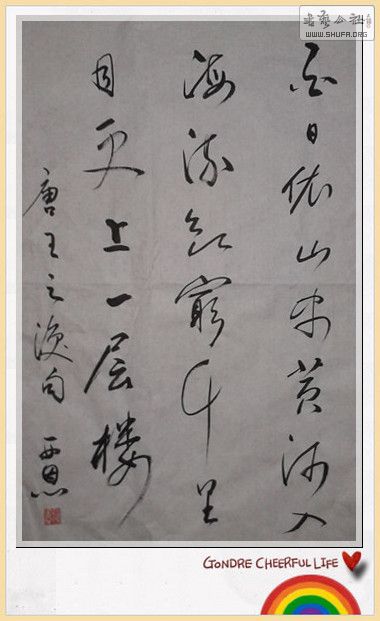 書藝公社
WWW.SHUFA.ORG
白日依山尽黄河入
海流欲窮千里
目更上一层楼
唐王之涣句
GONDRE CHEERFUL LIFE